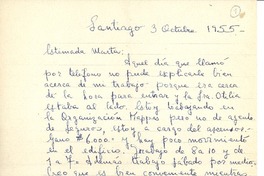 1
Santiago 3 Octubre 1955-
Estimada Marta:
Aquel día que llamó
por teléfono no pude explicarle bien
acerca de mi trabajo porque era cerca
de la hora para entrar y la Sra Otilia
estaba al lado. Estoy trabajando en
la Organización Kappés pero no de agente
de seguros, estoy a cargo del ascensor.
Gano $6.000.- Hay poco movimiento
en el edificio. Trabajo de 8 a 10 y de
1 a 7. Además trabajo sábado por medio.
Creo que es bien conveniente mientras